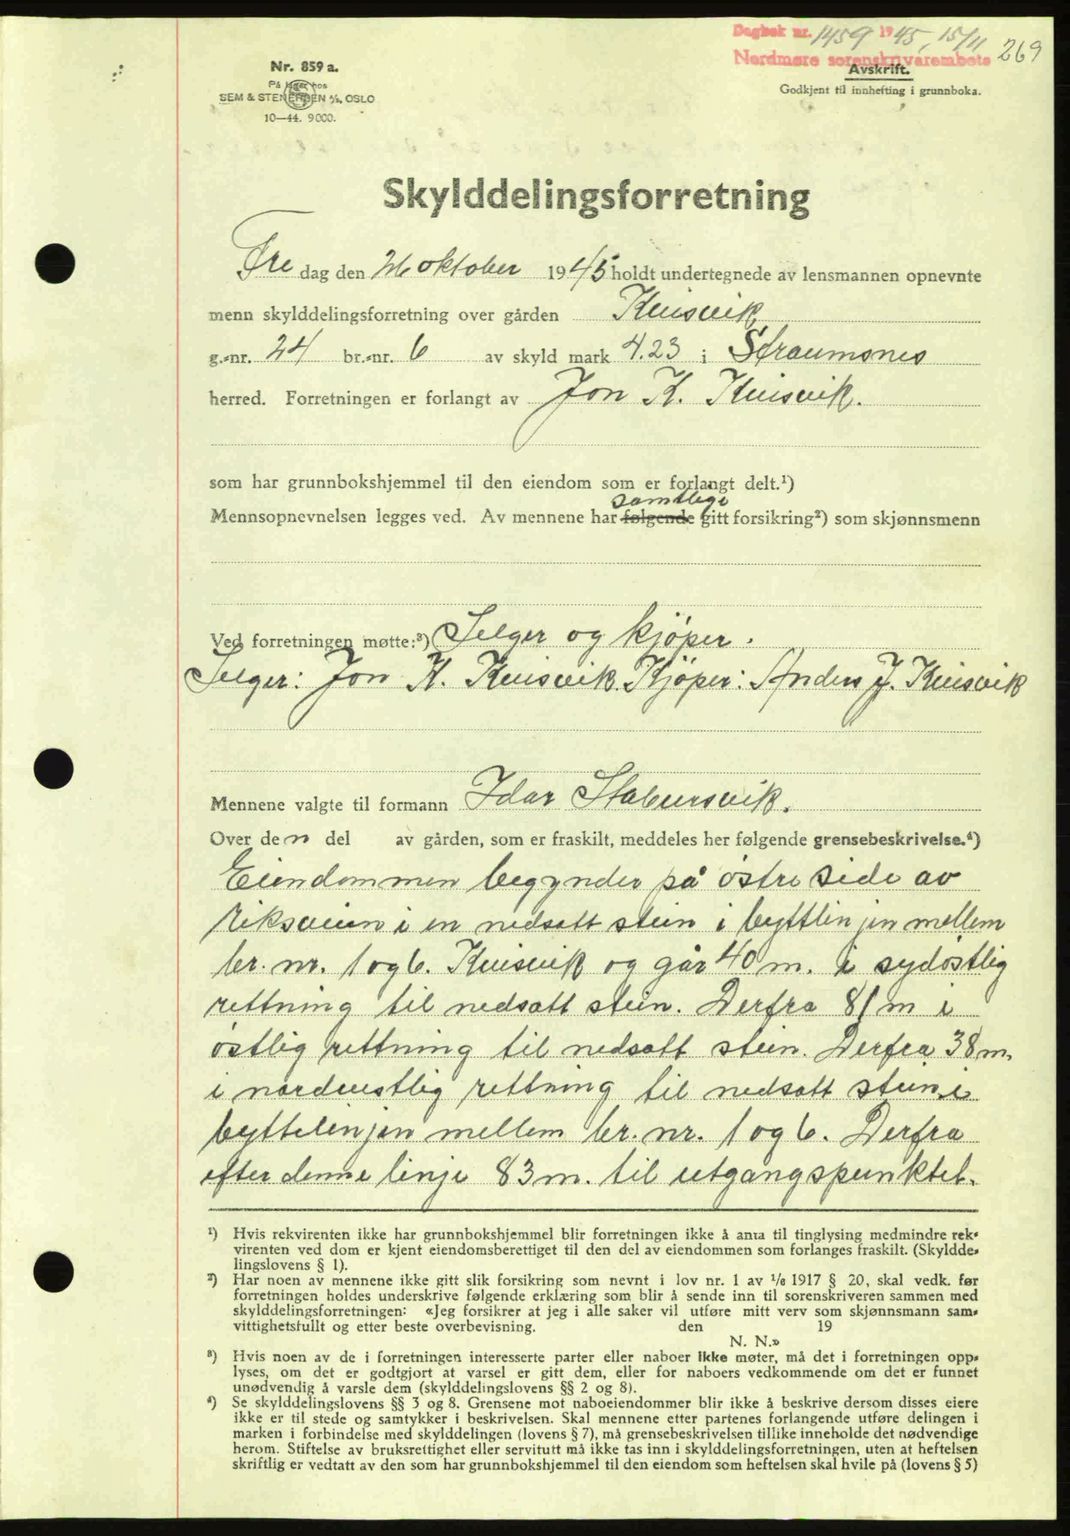 Dagbok nr. 1459 1945, 15/11
Nordmøre sorenskriverembete
269
Nr. 859 a.
På lager hos
SEM & STENERSEN A/S, OSLO
10—44. 9000.
Avskrift.
Godkjent til innhefting i grunnboka.
Skylddelingsforretning
Fredag den 26 oktober 1945 holdt undertegnede av lensmannen opnevnte
menn skylddelingsforretning over gården Kvisvik
g.-nr. 24 br.-nr. 6 av skyld mark 4.23 i Straumsnes
herred. Forretningen er forlangt av Jon K. Kvisvik.
som har grunnbokshjemmel til den eiendom som er forlangt delt.¹)
samtlige
Mennsopnevnelsen legges ved. Av mennene har følgende gitt forsikring²) som skjønnsmenn
Ved forretningen møtte:³) Selger og kjöper.
Selger: Jon K. Kvisvik. Kjöper: Anders J. Kvisvik
Mennene valgte til formann Idar Stabursvik.
Over den del av gården, som er fraskilt, meddeles her følgende grensebeskrivelse.⁴)
Eiendommen begynder på östre side av
riksveien i en nedsatt stein i byttlinjen mellem
br. nr. 1 og 6. Kvisvik og går 40 m. i sydöstlig
rettning til nedsatt stein. Derfra 81 m i
östlig rettning til nedsatt stein. Derfra 38 m.
i nordvestlig rettning til nedsatt stein i
byttelinjen mellem br. nr. 1 og 6. Derfra
efter denne linje 83 m. til utgangspunktet.
¹) Hvis rekvirenten ikke har grunnbokshjemmel blir forretningen ikke å anta til tinglysing medmindre rek-
virenten ved dom er kjent eiendomsberettiget til den del av eiendommen som forlanges fraskilt. (Skyldde-
lingslovens § 1).
²) Har noen av mennene ikke gitt slik forsikring som nevnt i lov nr. 1 av 1/6 1917 § 20, skal vedk. før
forretningen holdes underskrive følgende erklæring som blir å sende inn til sorenskriveren sammen med
skylddelingsforretningen: «Jeg forsikrer at jeg i alle saker vil utføre mitt verv som skjønnsmann sam-
vittighetsfullt og etter beste overbevisning. den 19
N. N.»
³) Hvis noen av de i forretningen interesserte parter eller naboer ikke møter, må det i forretningen opp-
lyses, om det er godtgjort at varsel er gitt dem, eller for naboers vedkommende om det er funnet
unødvendig å varsle dem (skylddelingslovens §§ 2 og 8).
⁴) Se skylddelingslovens §§ 3 og 8. Grensene mot naboeiendommer blir ikke å beskrive dersom disses eiere
ikke er til stede og samtykker i beskrivelsen. Skal mennene etter partenes forlangende utføre delingen i
marken i forbindelse med skylddelingen (lovens § 7), må grensebeskrivelsen tillike inneholde det nødvendige
herom. Stiftelse av bruksrettighet eller servitutt må ikke tas inn i skylddelingsforretningen, uten at heftelsen
skriftlig er vedtatt av den som har grunnbokshjemmel til den eiendom som heftelsen skal hvile på (lovens § 5)